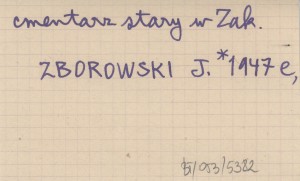 cmentarz stary w Zak.
ZBOROWSKI J. *1947 e,
/053/5322